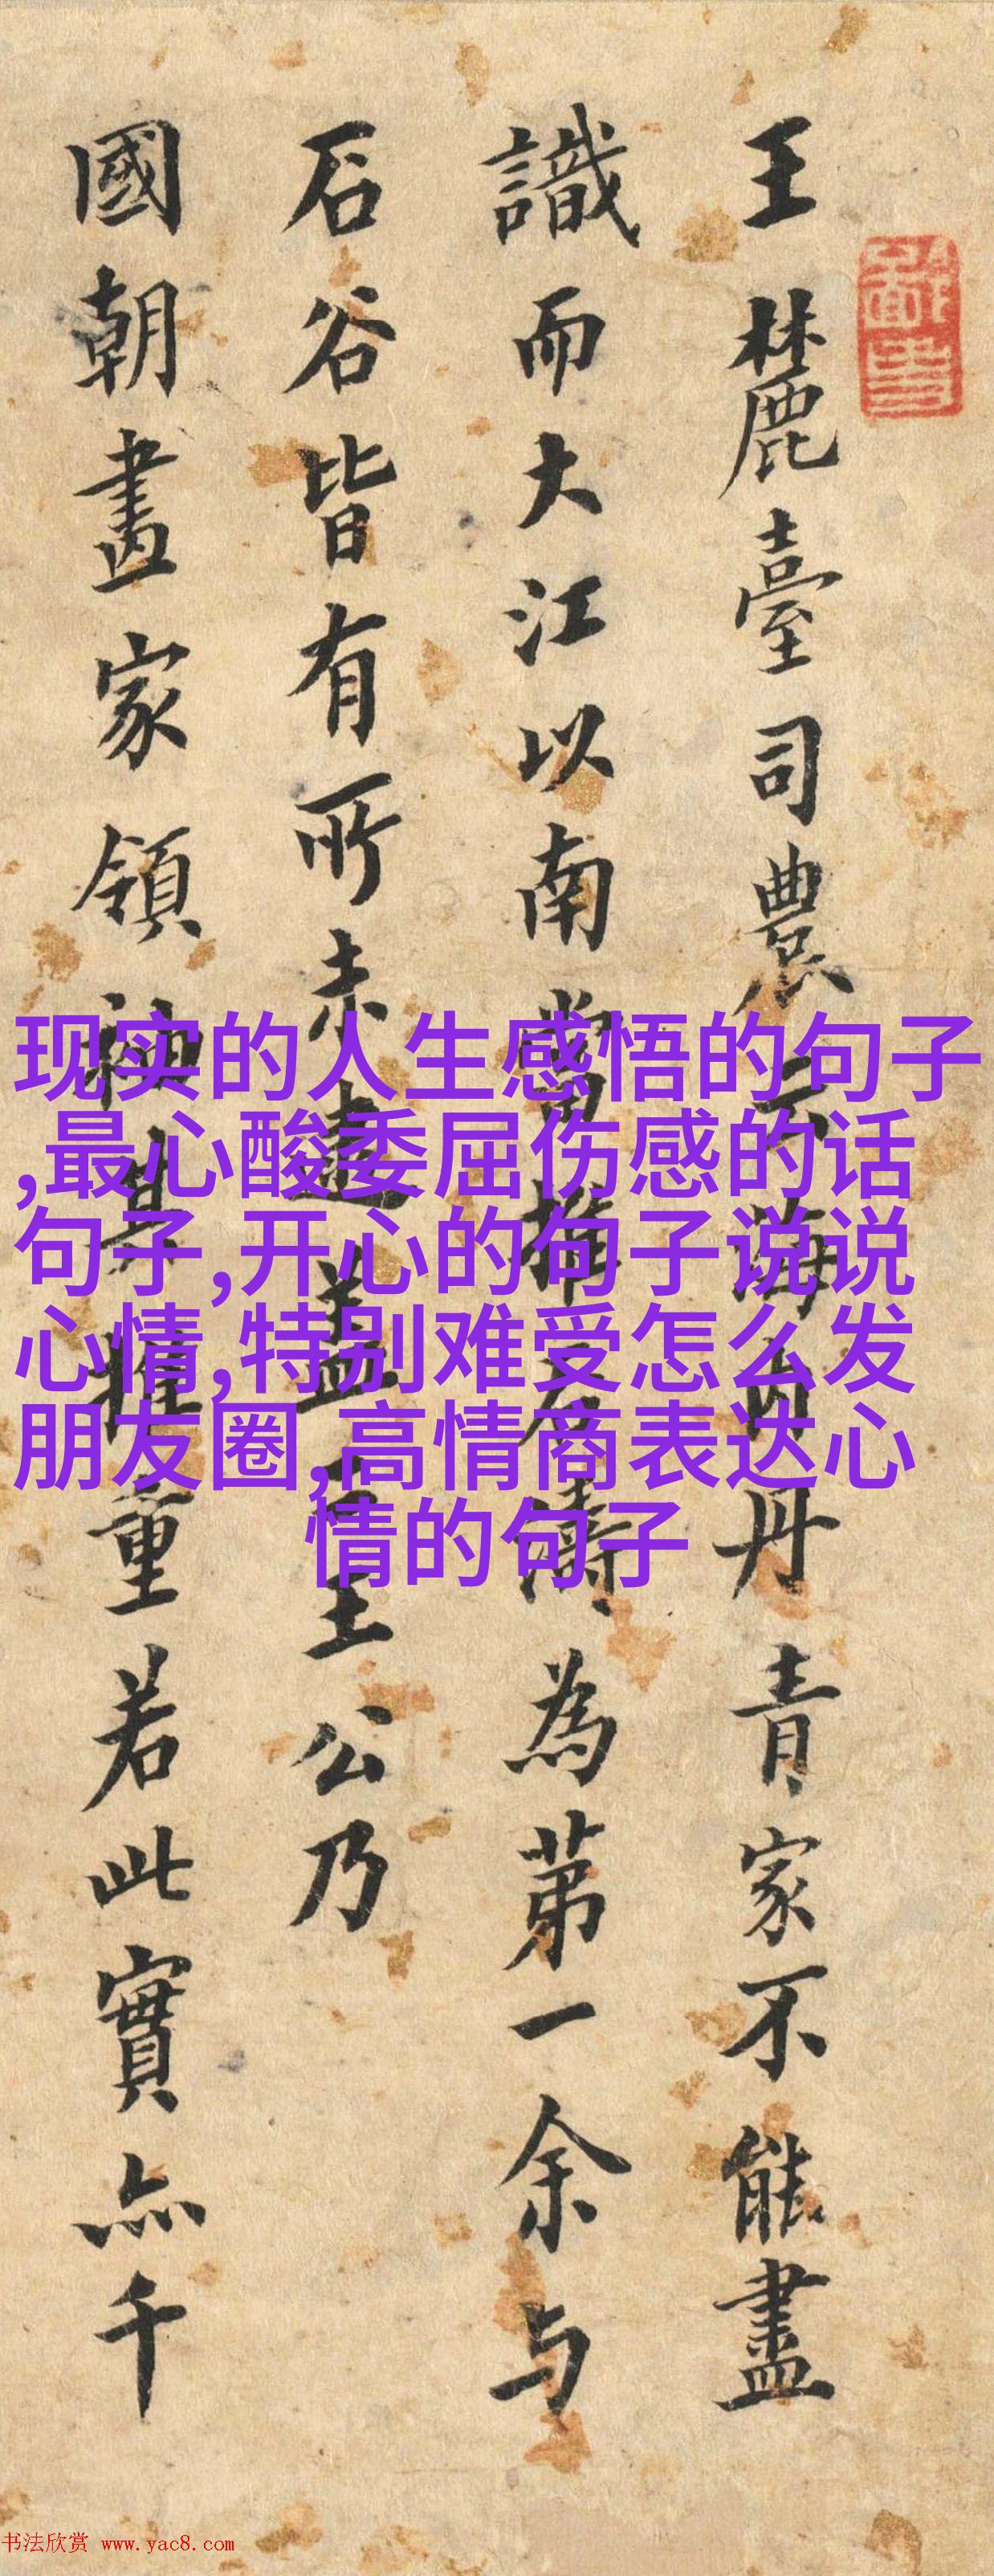 王麓臺司農云海內丹青家不能盡
識而大江以南當推君濤為第一余与
石谷皆有所未逮盖王公乃
國朝畫家領袖其推重若此實亦千
现实的人生感悟的句子
,最心酸委屈伤感的话
句子,开心的句子说说
心情,特别难受怎么发
朋友圈,高情商表达心
情的句子
书法欣赏 www.yac8.com